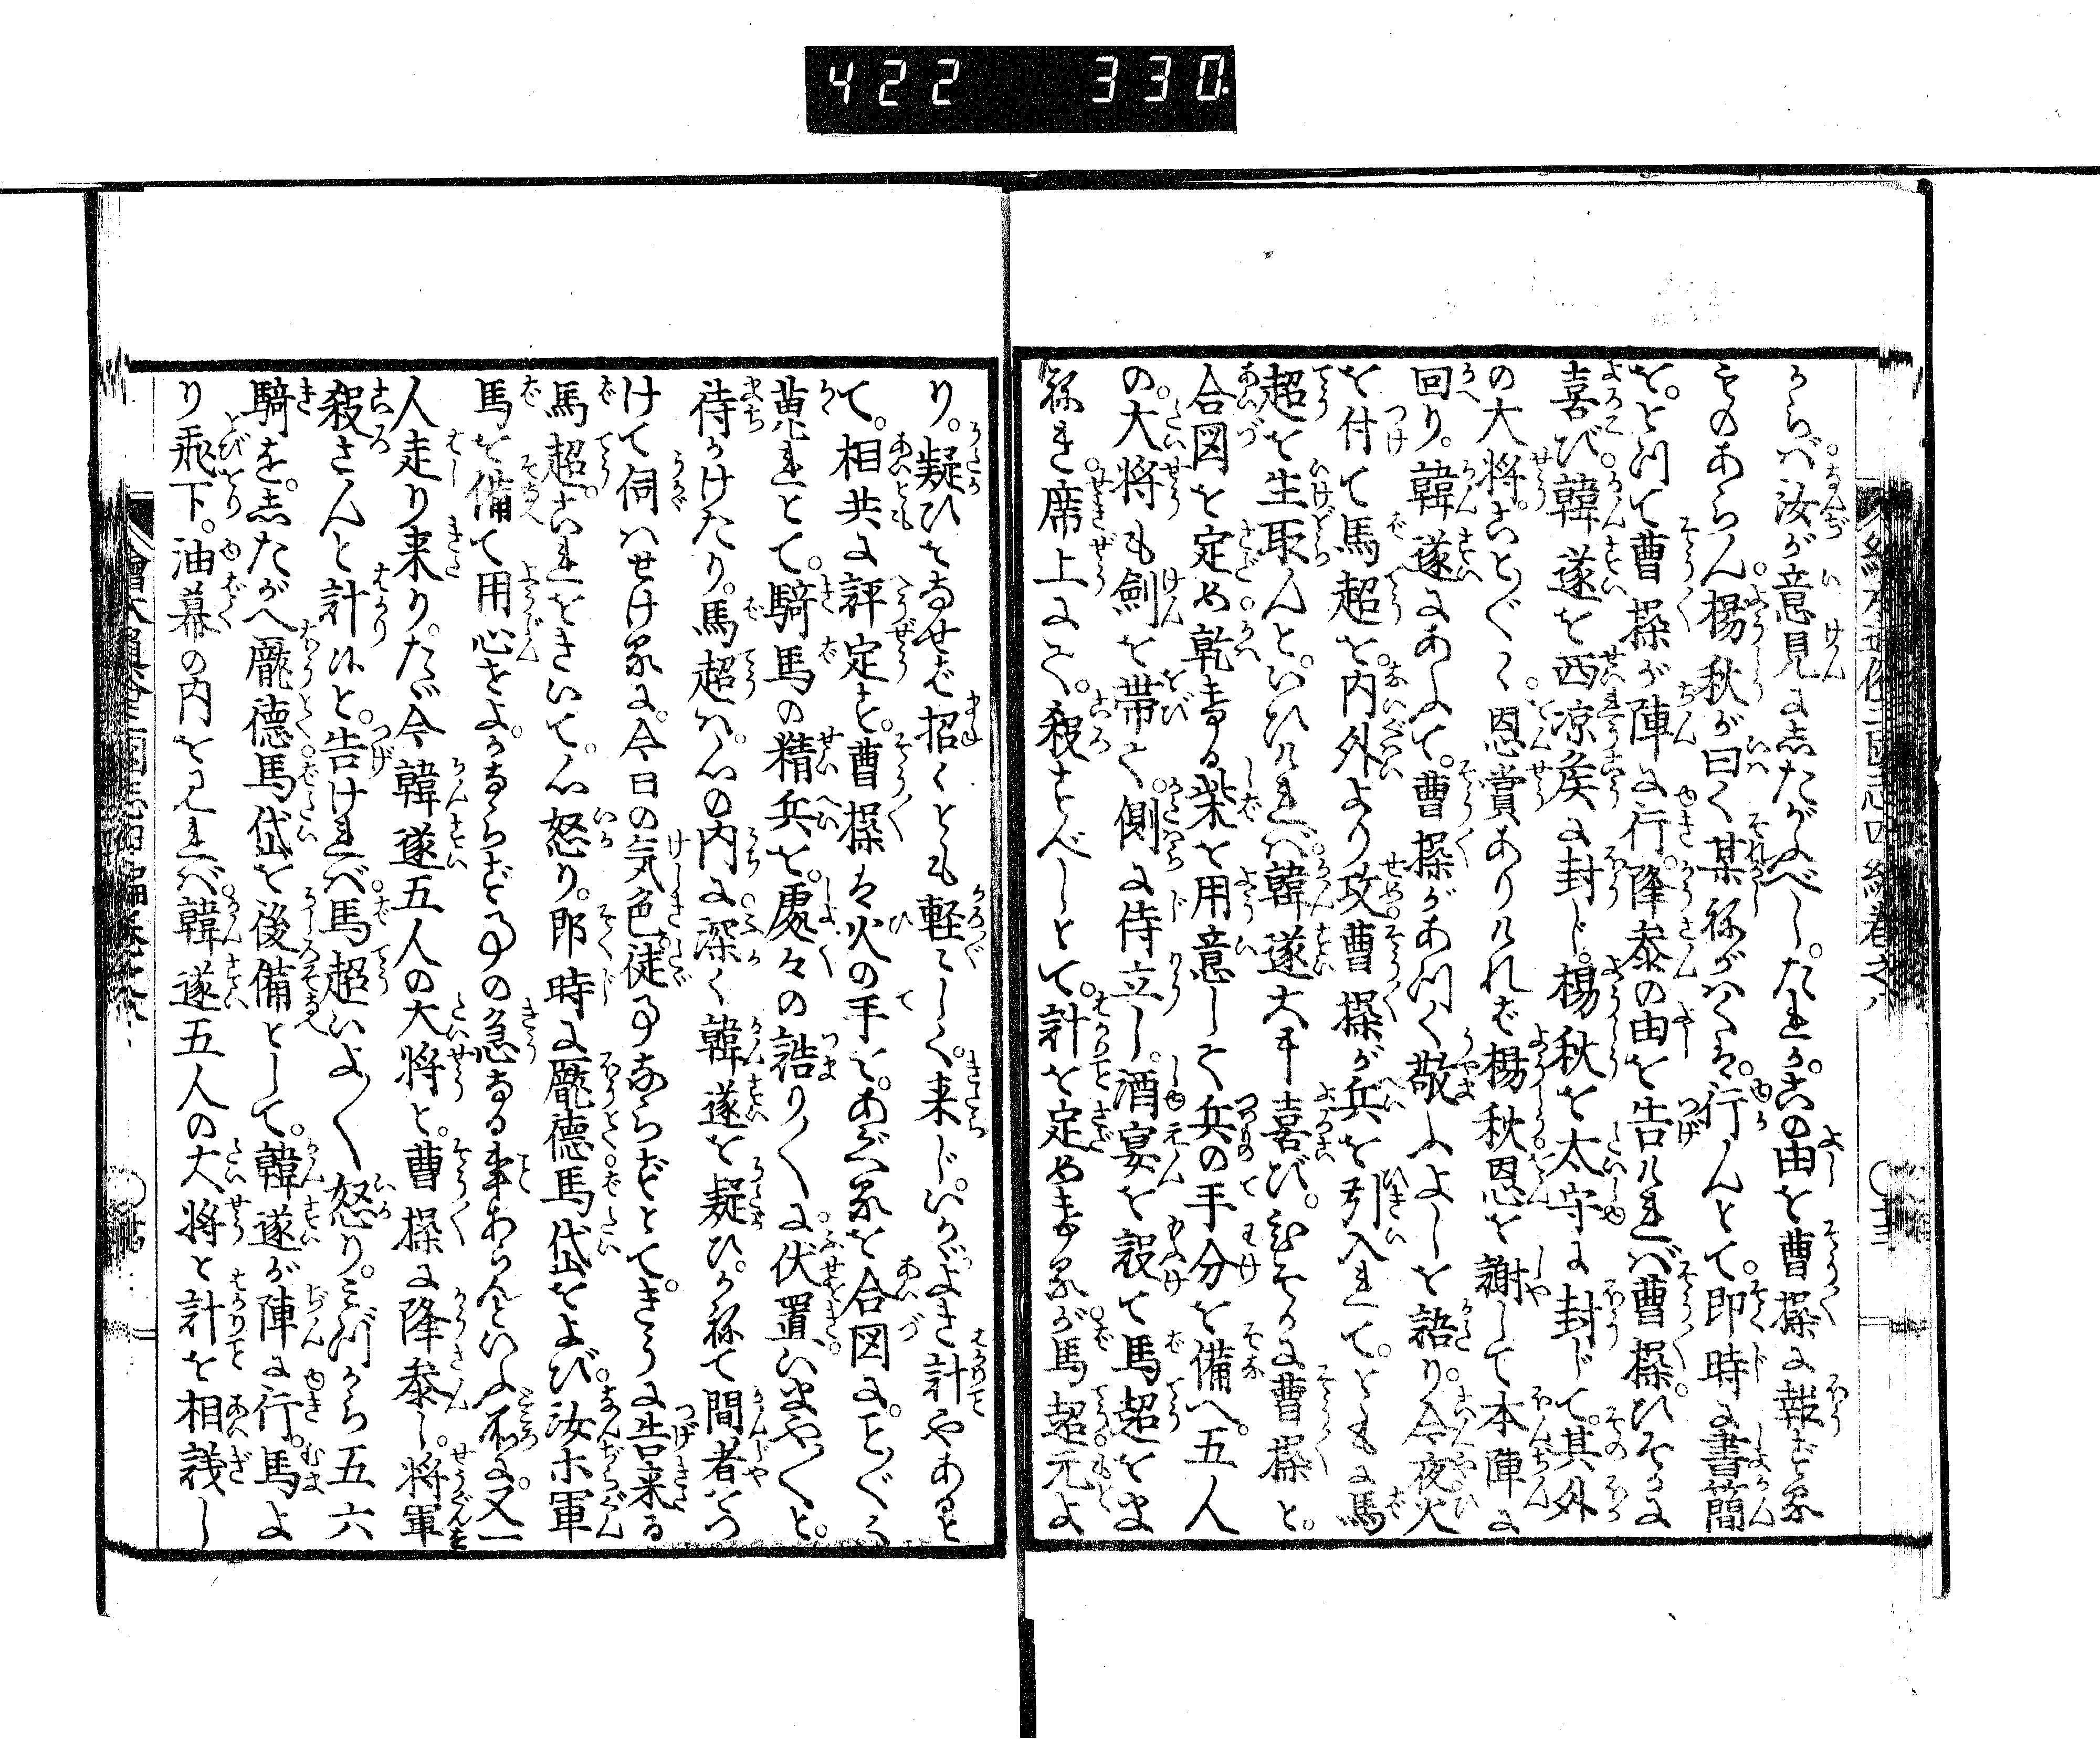 422 330
からバ汝が意見にしたがふべし。たれか。この由を曹操に報ずる
ものあらん楊秋が曰く某ねがハくは。行んとて。即時に書簡
を。とつて曹操が陣に行。降参の由を告けれバ曹操。ひそかに
喜び韓遂を西凉侯に封じ。楊秋を太守に封じて。其外
の大将。ことごとく恩賞ありければ楊秋恩を謝して本陣に
回り。韓遂にあふて。曹操があつく敬ふよしを語り。今夜火
を付て馬超を。内外より攻曹操が兵を引入れて。ともに馬
超を生取んと。いひけれバ韓遂大キ喜び。ひそかに曹操と。
合図を定め乾きたる柴を用意して兵の手分を備へ。五人
の。大将も剣を帯て。側に侍立し。酒宴を設て馬超をま
ねき席上にて。殺すべしとて。計を定めけるが馬超元よ
り。疑ひをなせば招くとも軽々しく。来じ。いかゞよき計やあると
て。相共に評定す。曹操は火の手を。あぐるを合図に。ことごとく
蒐れとて。騎馬の精兵を。處々の詰り〳〵に伏置。いまや〳〵と。
待かけたり。馬超ハ。心の内に深く韓遂を疑ひ。かねて間者をつ
けて伺ハせけるに。今日の気色徒事ならずとて。きうに告来る
馬超。これをきいて。心怒り。即時に龐徳馬岱をよび。汝ホ軍
馬を備て用心せよ。かならず事の急なる事あらんといふ所に。又一
人走り来り。たゞ今韓遂五人の大将と。曹操に降参し。将軍を
殺さんと計候と。告けれバ。馬超いよ〳〵怒り。みづから五六
騎を。したがへ龐徳馬岱を後備として。韓遂が陣に行。馬よ
り飛下。油幕の内をみれバ。韓遂五人の大将と計を相議し